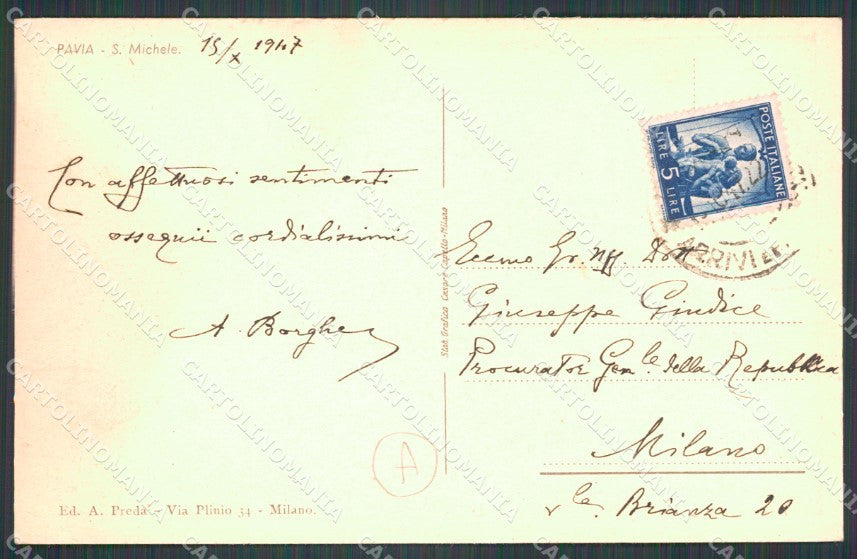 PAVIA - S. Michele. 15/X 1947
Con affettuosi sentimenti
ossequii cordialissimi
A. Borghe
Ed. A. Preda - Via Plinio 34 - Milano.
A
Stab. Grafico Cesare Capello - Milano
POSTE ITALIANE
LIRE 5 LIRE
ARRIVI E
Eccmo Gr. Uff. Dor
Giuseppe Giudice
Procurator Gen.le della Repubblica
Milano
v.le Brianza 20
CARTOLINOMANIA